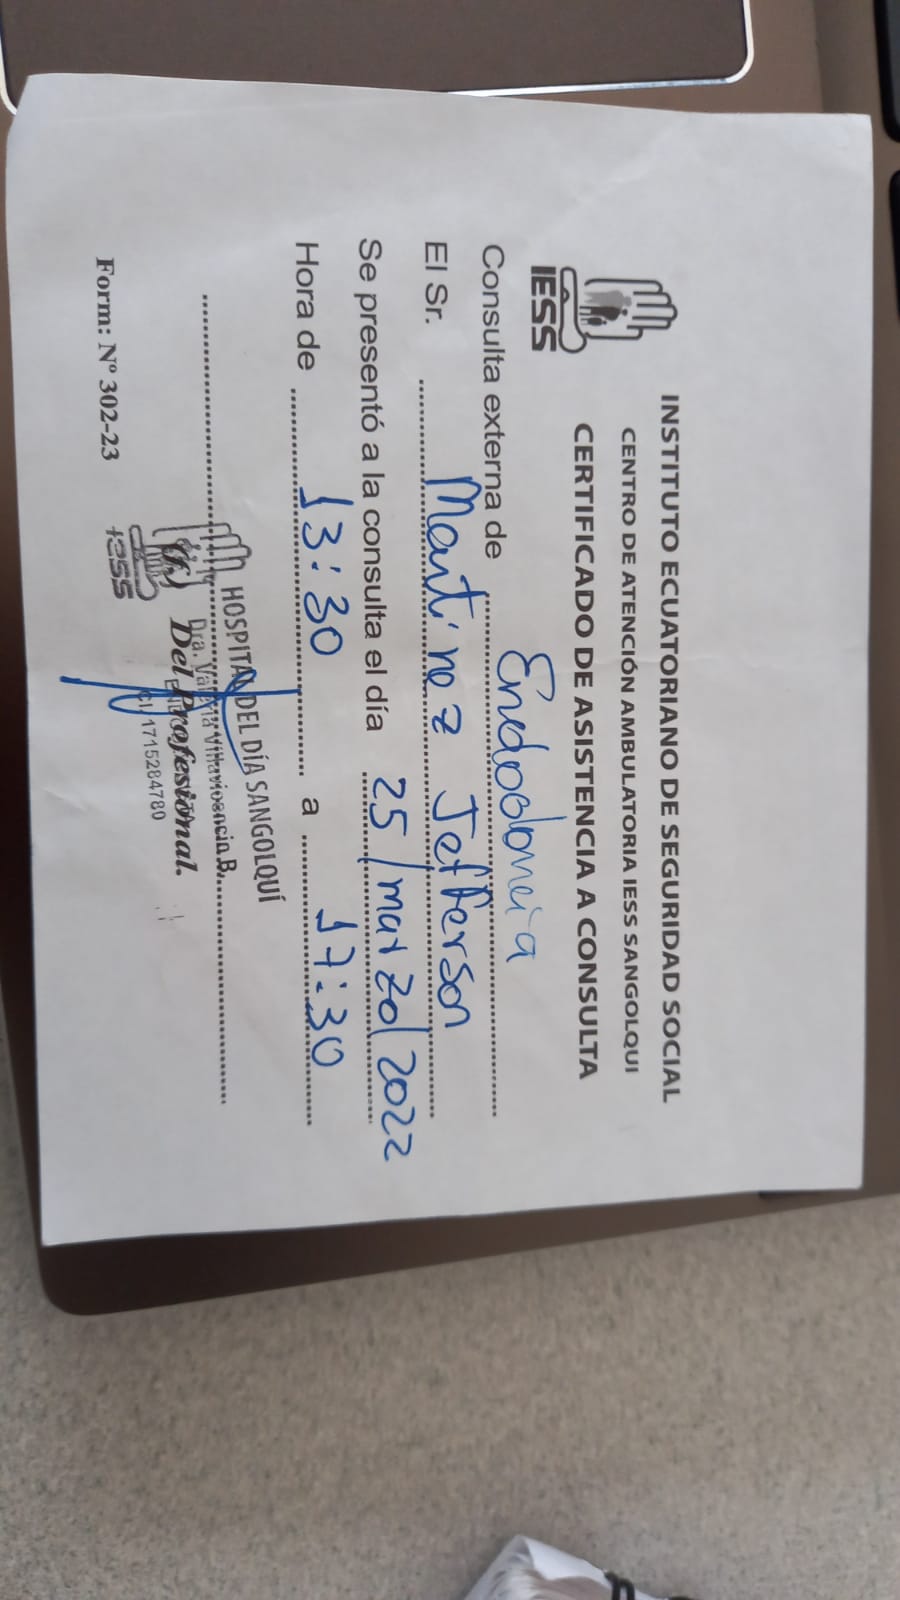 INSTITUTO ECUATORIANO DE SEGURIDAD SOCIAL
CENTRO DE ATENCIÓN AMBULATORIA IESS SANGOLQUI
CERTIFICADO DE ASISTENCIA A CONSULTA
IESS
Consulta externa de Endodoncia
El Sr. Martinez Jefferson
Se presentó a la consulta el día 25/marzo/2022
Hora de 13:30 a 17:30
HOSPITAL DEL DÍA SANGOLQUÍ
Dra. Valeria Villavicencio B.
(f.) Del Profesional.
CI. 1715284780
IESS
Form: Nº 302-23